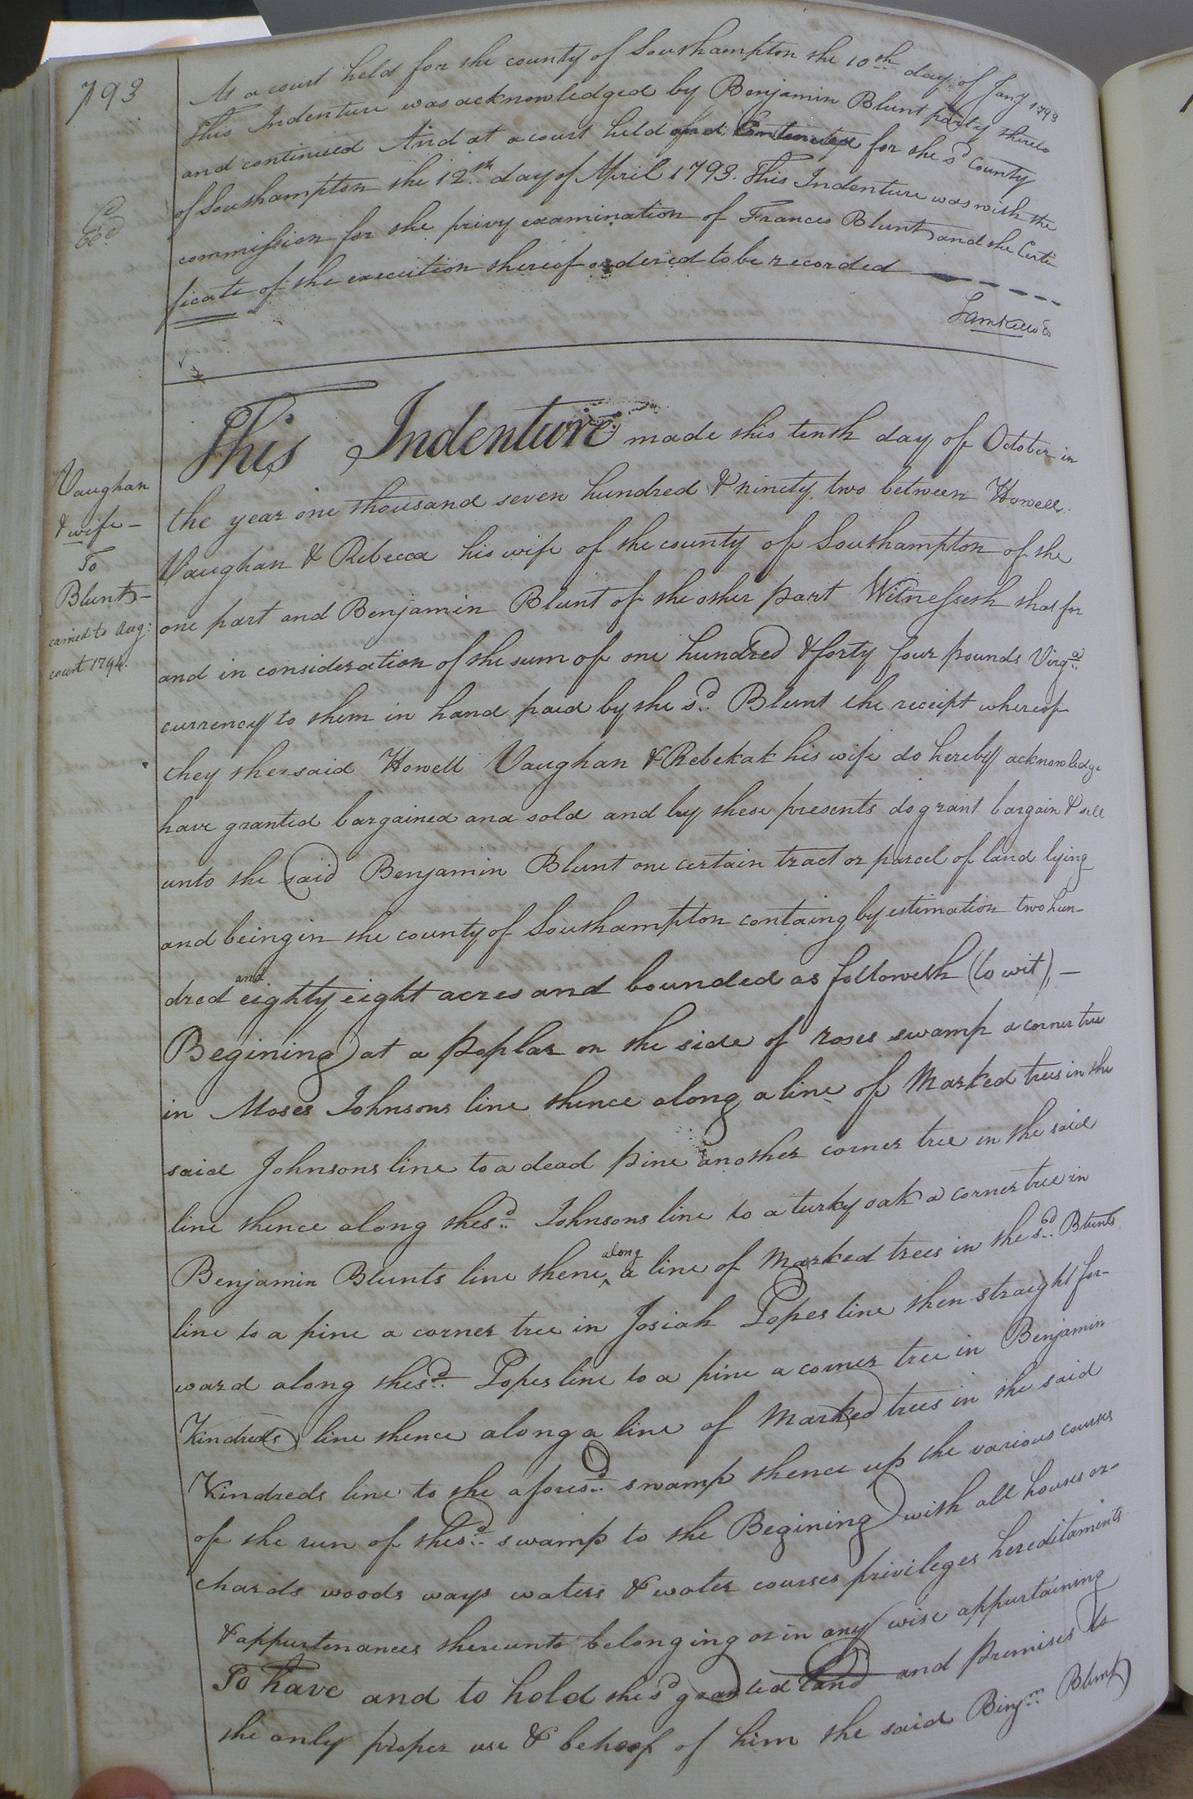 793
At a court held for the county of Southampton the 10th day of Jany 1793
This Indenture was acknowledged by Benjamin Blunt party thereto
and continued And at a court held for the sd County
of Southampton the 12th day of April 1793. This Indenture was with the
commission for the privy examination of Frances Blunt and the Certi
ficate of the execution thereof ordered to be recorded
Exd
Vaughan
& wife -
To
Blunt -
carried to Aug:
court 1794.
This Indenture made this tenth day of October in
the year one thousand seven hundred & ninety two between Howell
Vaughan & Rebecca his wife of the county of Southampton of the
one part and Benjamin Blunt of the other part Witnesseth that for
and in consideration of the sum of one hundred & forty four pounds Virga
currency to them in hand paid by the sd. Blunt the receipt whereof
they the said Howell Vaughan & Rebekah his wife do hereby acknowledge
have granted bargained and sold and by these presents do grant bargain & sell
unto the said Benjamin Blunt one certain tract or parcel of land lying
and being in the county of Southampton containg by estimation two hun-
dred and eighty eight acres and bounded as followeth (to wit), -
Begining at a poplar on the side of roses swamp a corner tree
in Moses Johnsons line thence along a line of Marked trees in the
said Johnsons line to a dead pine another corner tree in the said
line thence along the sd. Johnsons line to a turky oak a corner tree in
Benjamin Blunts line thene along a line of Marked trees in the sd. Blunts
line to a pine a corner tree in Josiah Popes line then straight for-
ward along the sd. Popes line to a pine a corner tree in Benjamin
Kindreds line thence along a line of Marked trees in the said
Kindreds line to the aforesd. swamp thence up the various courses
of the run of the sd. swamp to the Begining with all houses or-
chards woods ways waters & water courses privileges hereditaments
& appurtenances thereunto belonging or in any wise appurtaining
To have and to hold the sd granted land and premises to
the only proper use & behoof of him the said Benjn. Blunt